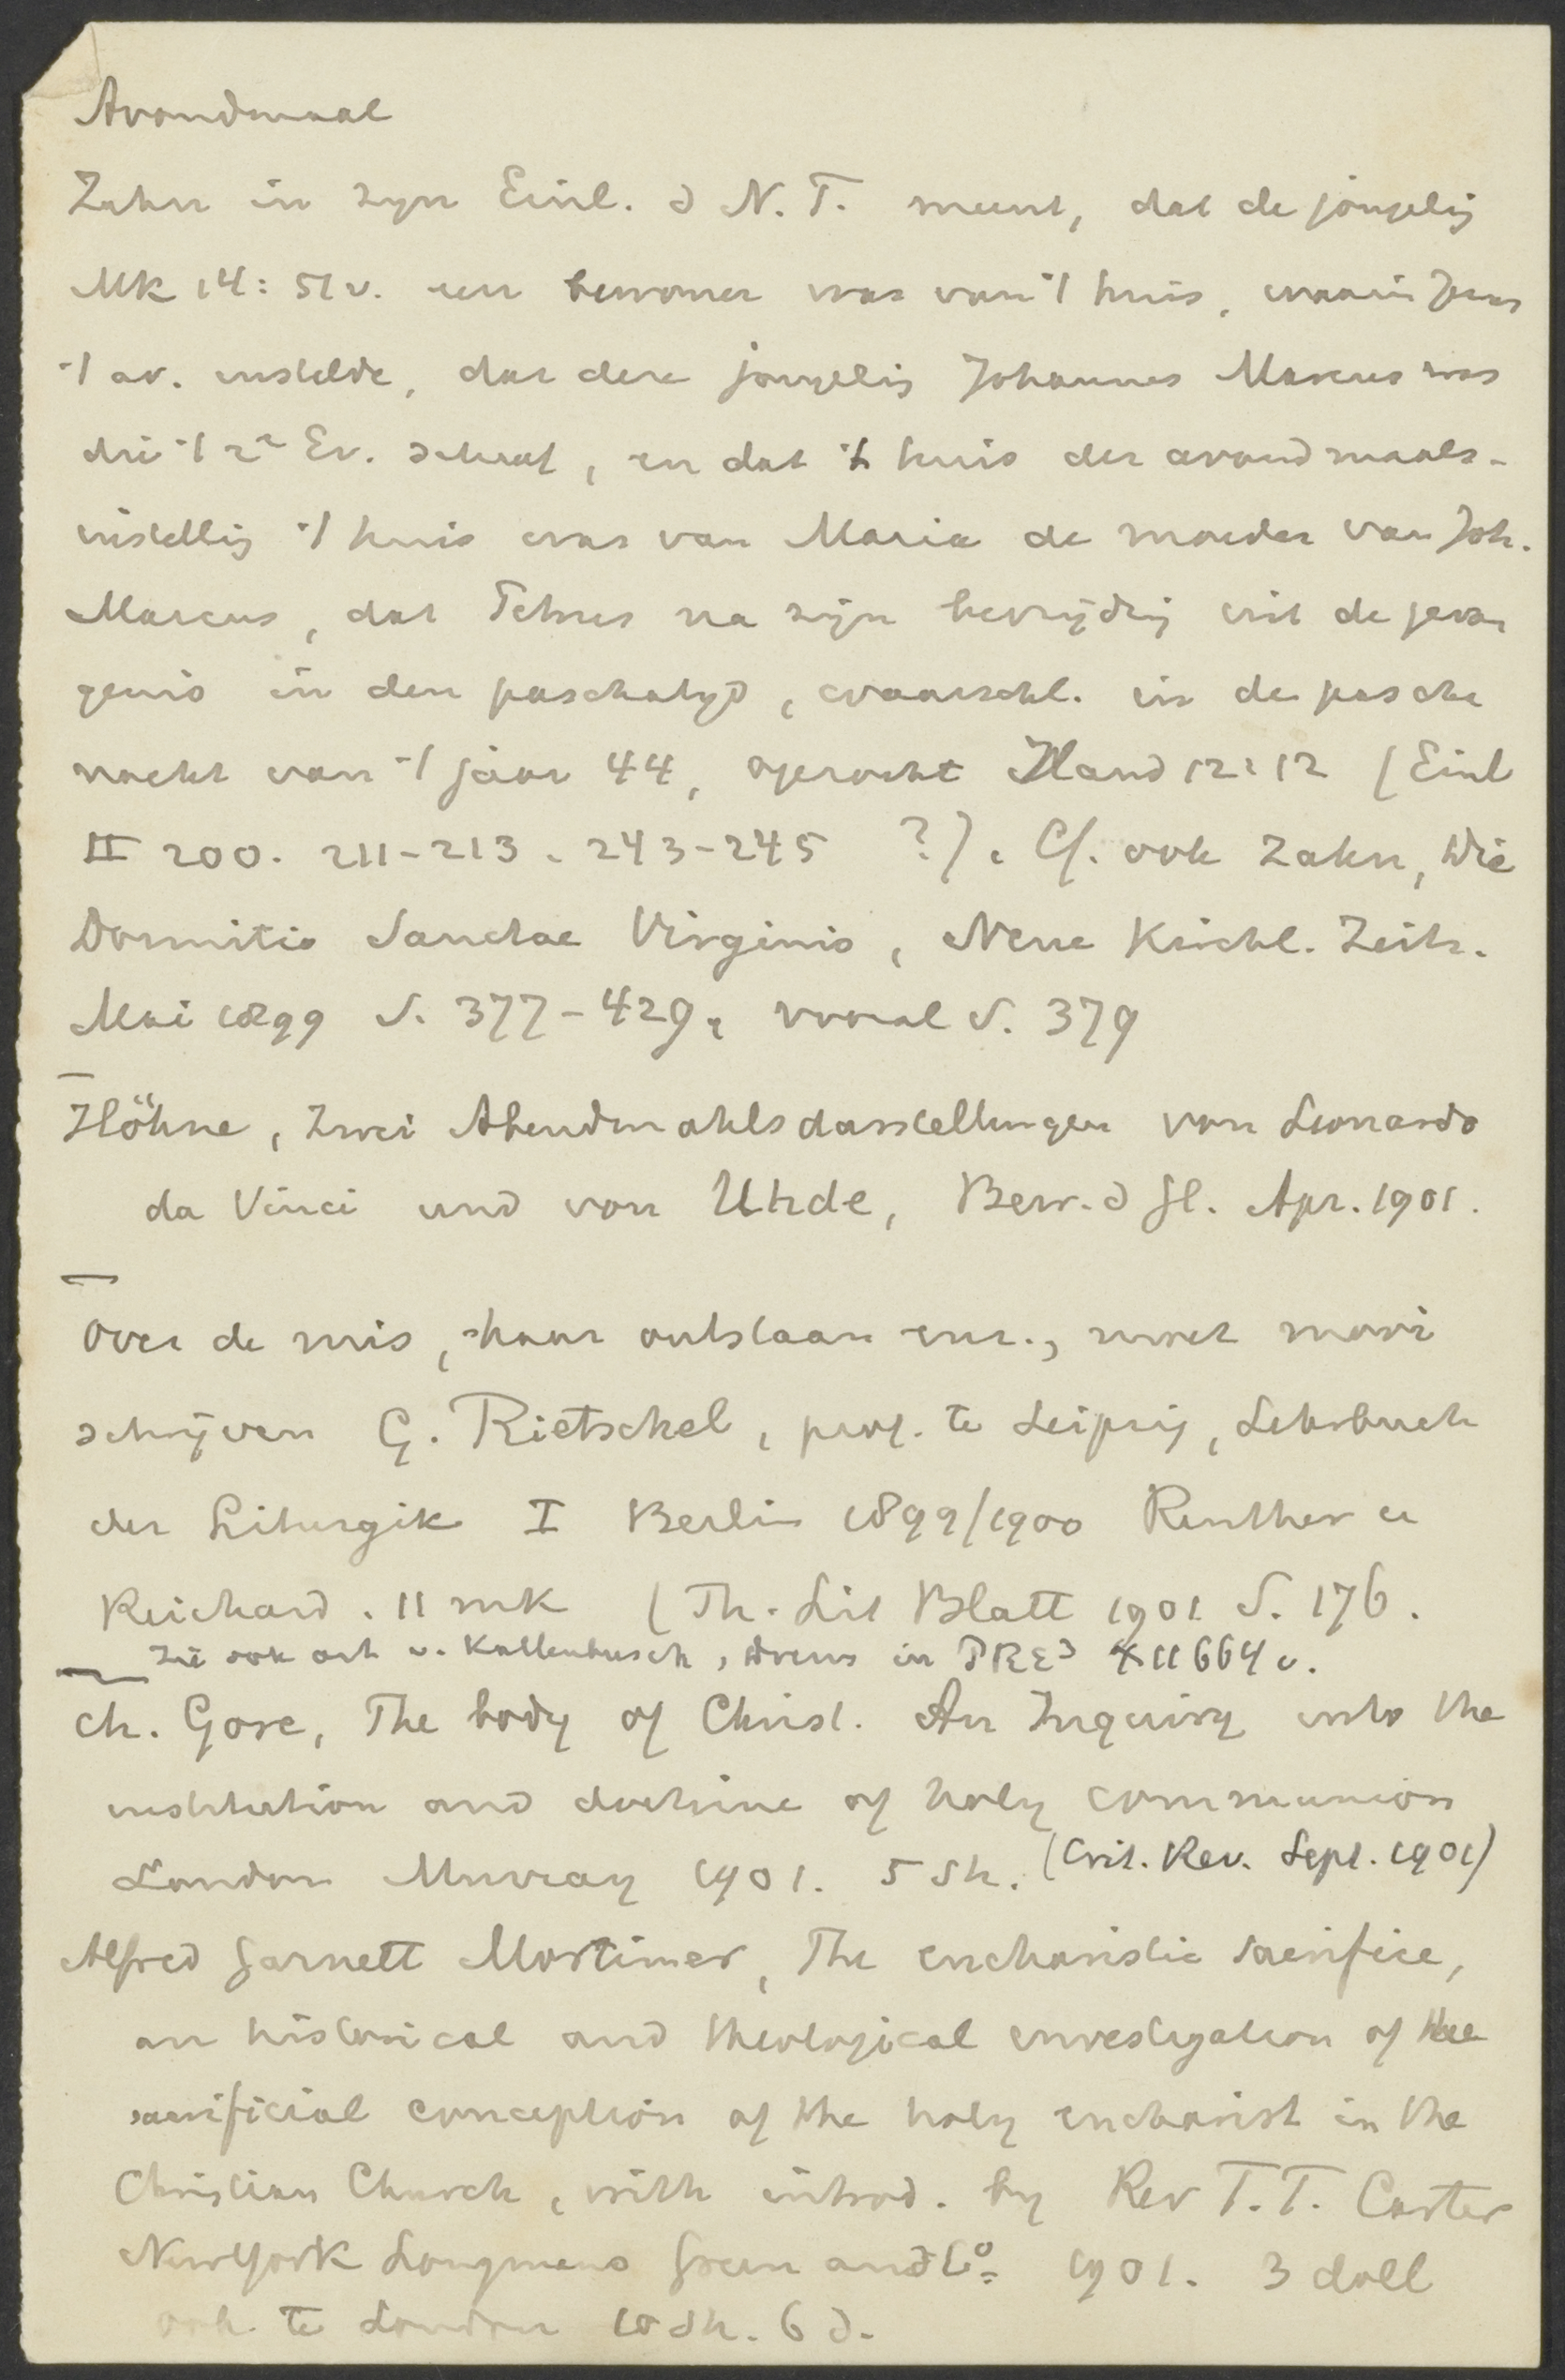 Avondmaal
Zahn in zijn Einl. d N. T. meent, dat de jongeling
Mk 14: 51 v. een bewoner was van 't huis, waarin Jezus
't av. instelde, dat deze jongeling Johannes Marcus was
die 't 2e Ev. schreef, en dat 't huis der avondmaals-
instelling 't huis was van Maria de moeder van Joh.
Marcus, dat Petrus na zijn bevrijding uit de gevan
genis in den paschatijd, waarschl. in de pascha
nacht van 't jaar 44, opzocht Hand 12:12 (Einl
II 200. 211-213. 243-245 ?). Cf. ook Zahn, Die
Dormitio Sanctae Virginis, Neue Kirchl. Zeits.
Mai 1899 S. 377-429, vooral S. 379
Höhne, Zwei Abendmahlsdarstellungen von Leonardo
da Vinci und von Uhde, Bew. d Gl. Apr. 1901.
Over de mis, haar ontstaan enz., zeer mooi
schrijven G. Rietschel, prof. te Leipzig, Lehrbuch
der Liturgik I Berlin 1899/1900 Reuther u
Reichard. 11 mk (Th. Lit Blatt 1901 S. 176.
Zie ook art v. Kattenbusch, Drews in PRE3 XII 664 v.
Ch. Gore, The body of Christ. An Inquiry into the
institution and doctrine of holy communion
London Murray 1901. 5 Sh. (Crit. Rev. Sept. 1901)
Alfred Garnett Mortimer, The eucharistic sacrifice,
an historical and theological investigation of the
sacrificial conception of the holy eucharist in the
Christian Church, with introd. by Rev T. T. Carter
New York Longmans Green and Co. 1901. 3 doll
ook te London 10 Sh. 6 d.